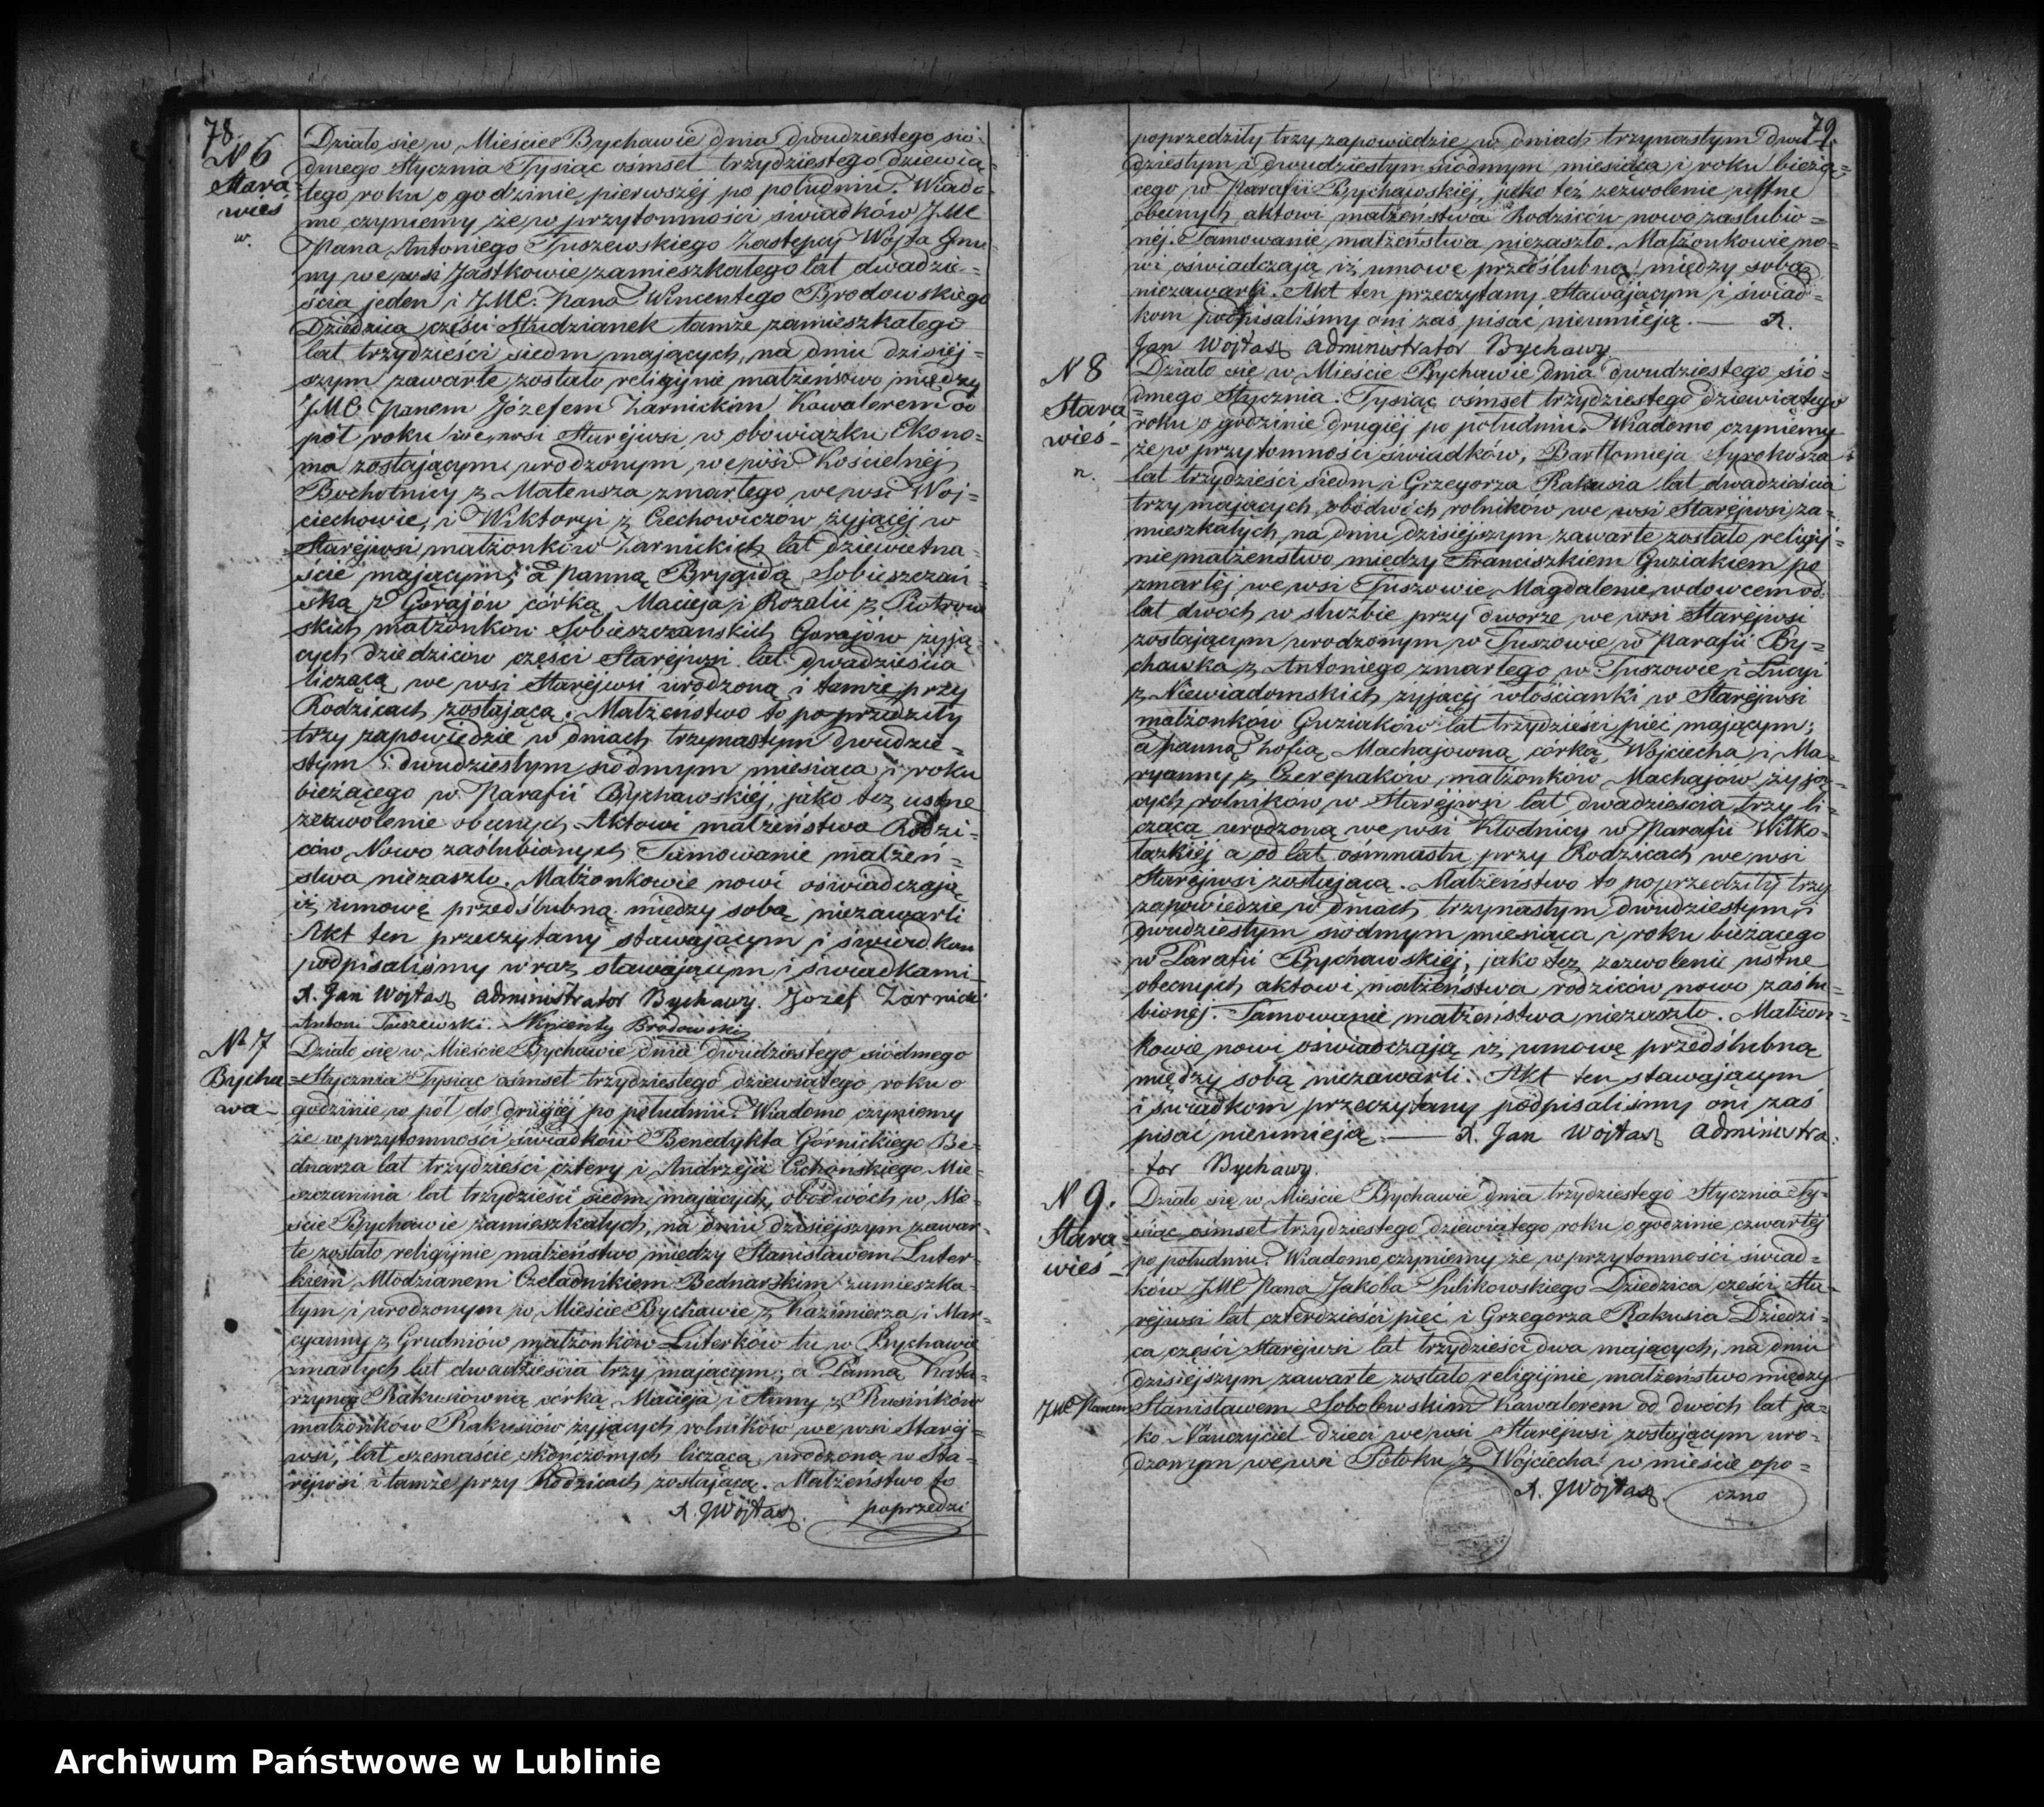 78.
N 6
Stara
wieś
w.
Działo się w Mieście Bychawie dnia dwudziestego sió-
dmego Stycznia Tysiąc ośmset trzydziestego dziewią-
tego roku o godzinie pierwszéj po południu. Wiado-
mo czyniemy że w przytomności świadków JMC
Pana Antoniego Tuszewskiego Zastępcy Wójta Gmi-
ny we wsi Jastkowie zamieszkałego lat dwadzie-
ścia jeden i JMC. Pana Wincentego Brodowskiego
Dziedzica części Studzianek tamże zamieszkałego
lat trzydzieści siedm mających, na dniu dzisiéj-
szym zawarte zostało religijnie małżeństwo między
JMC Panem Józefem Żarnickim Kawalerem od
pół roku we wsi Staréjwsi w obowiązku Ekono-
ma zostającym, urodzonym we wsi Kościelnéj
Bochotnicy z Mateusza zmarłego we wsi Woj-
ciechowie, i Wiktoryi z Czechowiczów żyjącéj w
Staréjwsi małżonków Żarnickich lat dziewietna-
ście mającym; a Panną Brygidą Sobieszczań-
ską z Gorajów córką Macieja i Rozalii z Piotrow-
skich małżonków Sobieszczanskich Gorajów żyją-
cych dziedziców części Staréjwsi lat dwadzieścia
liczącą we wsi Staréjwsi urodzoną i tamże przy
Rodzicach zostającą. Małżeństwo to poprzedziły
trzy zapowiedzie w dniach trzynastym dwudzie-
stym i dwudziestym siódmym miesiąca i roku
bieżącego w Parafii Bychawskiéj, jako też ustne
zezwolenie obecnych Aktowi małżeństwa Rodzi-
ców Nowo zaślubionych Tamowanie małżeń-
stwa niezaszło. Małżonkowie nowi oświadczają
iż umowę przedślubną między sobą niezawarli
Akt ten przeczytany stawającym i świadkom
podpisaliśmy wraz stawającym i świadkami
X. Jan Wójtasz Administrator Bychawy. Jozef Żarnicki
Antoni Tuszewski. Wincenty Brodowski
N 7
Bycha-
wa
Działo się w Mieście Bychawie dnia dwudziestego siódmego
Stycznia Tysiąc ośmset trzydziestego dziewiątego roku o
godzinie w pół do drugiéj po południu. Wiadomo czyniemy
że w przytomności świadków Benedykta Górnickiego Be-
dnarza lat trzydzieści cztery i Andrzeja Cichońskiego Mie-
szczanina lat trzydzieści siedm mających, obódwóch w Mie-
ście Bychawie zamieszkałych, na dniu dzisiejszym zawar-
te zostało religijnie małżeństwo między Stanisławem Luter-
kiem Młodzianem Czeladnikiem Bednarskim zamieszka-
łym i urodzonym w Mieście Bychawie z Kazimierza i Mar-
cyanny z Grudniów małżonków Luterków tu w Bychawie
zmarłych lat dwadzieścia trzy mającym; a Panną Kata-
rzyną Rakusiówną córką Macieja i Anny z Rusinków
małżonków Rakusiów żyjących rolników we wsi Staréj-
wsi, lat szesnaście skończonych liczącą, urodzoną w Sta-
réjwsi i tamże przy Rodzicach zostającą. Małżeństwo to
X. JWójtasz poprzedzi
79.
poprzedziły trzy zapowiedzie w dniach trzynastym dwu-
dziestym i dwudziestym siódmym miesiąca i roku bieżą-
cego w Parafii Bychawskiéj, jako też zezwolenie ustne
obecnych aktowi małżeństwa Rodziców nowo zaślubio-
néj. Tamowanie małżeństwa niezaszło. Małżonkowie no-
wi oświadczają iż umowę przedślubną między sobą
niezawarli. Akt ten przeczytany Stawającym i świad-
kom podpisaliśmy oni zaś pisać nieumieją. — X.
Jan Wójtasz Administrator Bychawy
N 8
Stara
wieś
n.
Działo się w Mieście Bychawie dnia dwudziestego sió-
dmego Stycznia Tysiąc ośmset trzydziestego dziewiątego
roku o godzinie drugiéj po południu. Wiadomo czyniemy
że w przytomności świadków, Bartłomieja Syrokosza
lat trzydzieści siedm i Grzegorza Rakusia lat dwadzieścia
trzy mających, obódwóch rolników we wsi Staréjwsi za-
mieszkałych, na dniu dzisiejszym zawarte zostało religij-
nie małżeństwo między Franciszkiem Guziakiem po
zmarłéj we wsi Tuszowie Magdalenie wdowcem od
lat dwóch w służbie przy dworze we wsi Staréjwsi
zostającym urodzonym w Tuszowie w Parafii By-
chawka z Antoniego zmarłego w Tuszowie i Łucyi
z Niewiadomskich żyjącéj włościanki w Staréjwsi
małżonków Guziaków lat trzydzieści pięć mającym;
a panną Zofią Machajówną córką Wojciecha i Ma-
ryanny z Czerepaków małżonków Machajów żyją-
cych rolników w Staréjwsi lat dwadzieścia trzy li-
czącą urodzoną we wsi Kłodnicy w Parafii Wilko-
łazkiéj a od lat ośmnastu przy Rodzicach we wsi
Staréjwsi zostającą. Małżeństwo to poprzedziły trzy
zapowiedzie w dniach trzynastym dwudziestym i
dwudziestym siódmym miesiąca i roku bieżącego
w Parafii Bychawskiéj, jako też zezwolenie ustne
obecnych aktowi małżeństwa rodziców nowo zaślu-
bionéj. Tamowanie małżeństwa niezaszło. Małżon-
kowie nowi oświadczają iż umowę przedślubną
między sobą niezawarli. Akt ten stawającym
i świadkom przeczytany podpisaliśmy oni zaś
pisać nieumieją. — X. Jan Wójtasz Administra-
tor Bychawy
N 9.
Stara
wieś
Działo się w Mieście Bychawie dnia trzydziestego Stycznia Ty-
siąc ośmset trzydziestego dziewiątego roku o godzinie czwartéj
po południu. Wiadomo czyniemy że w przytomności świad-
ków JMC Pana Jakóba Lilikowskiego Dziedzica części Sta-
réjwsi lat czterdzieści pięć i Grzegorza Rakusia Dziedzi-
ca części Staréjwsi lat trzydzieści dwa mających, na dniu
dzisiejszym zawarte zostało religijnie małżeństwo między
JMC Panem Stanisławem Sobolewskim Kawalerem od dwóch lat ja-
ko Nauczyciel dzieci we wsi Staréjwsi zostającym uro-
dzonym we wsi Potoku z Wojciecha w mieście opo-
X. JWójtasz czno
Archiwum Państwowe w Lublinie